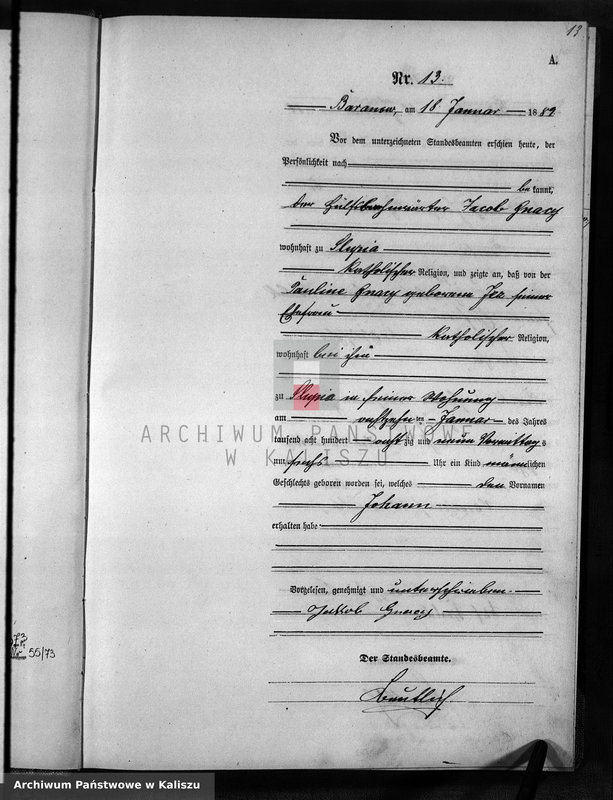 13
A.
Nr. 13.
Baranow, am 18. Januar 1889
Vor dem unterzeichneten Standesbeamten erschien heute, der
Persönlichkeit nach
bekannt,
der Hülfsbahnwärter Jacob Gnacy
wohnhaft zu Slupia
katholischer Religion, und zeigte an, daß von der
Pauline Gnacy geborenen Jez seiner
Ehefrau
katholischer Religion,
wohnhaft bei ihm
zu Slupia in seiner Wohnung
am achtzehnten Januar des Jahres
tausend acht hundert achtzig und neun Vormittags
um sechs Uhr ein Kind männlichen
Geschlechts geboren worden sei, welches den Vornamen
Johann
erhalten habe
Vorgelesen, genehmigt und unterschrieben.
Jakob Gnacy
Der Standesbeamte.
55/73
ARCHIWUM PAŃSTWOWE
W KALISZU
Archiwum Państwowe w Kaliszu